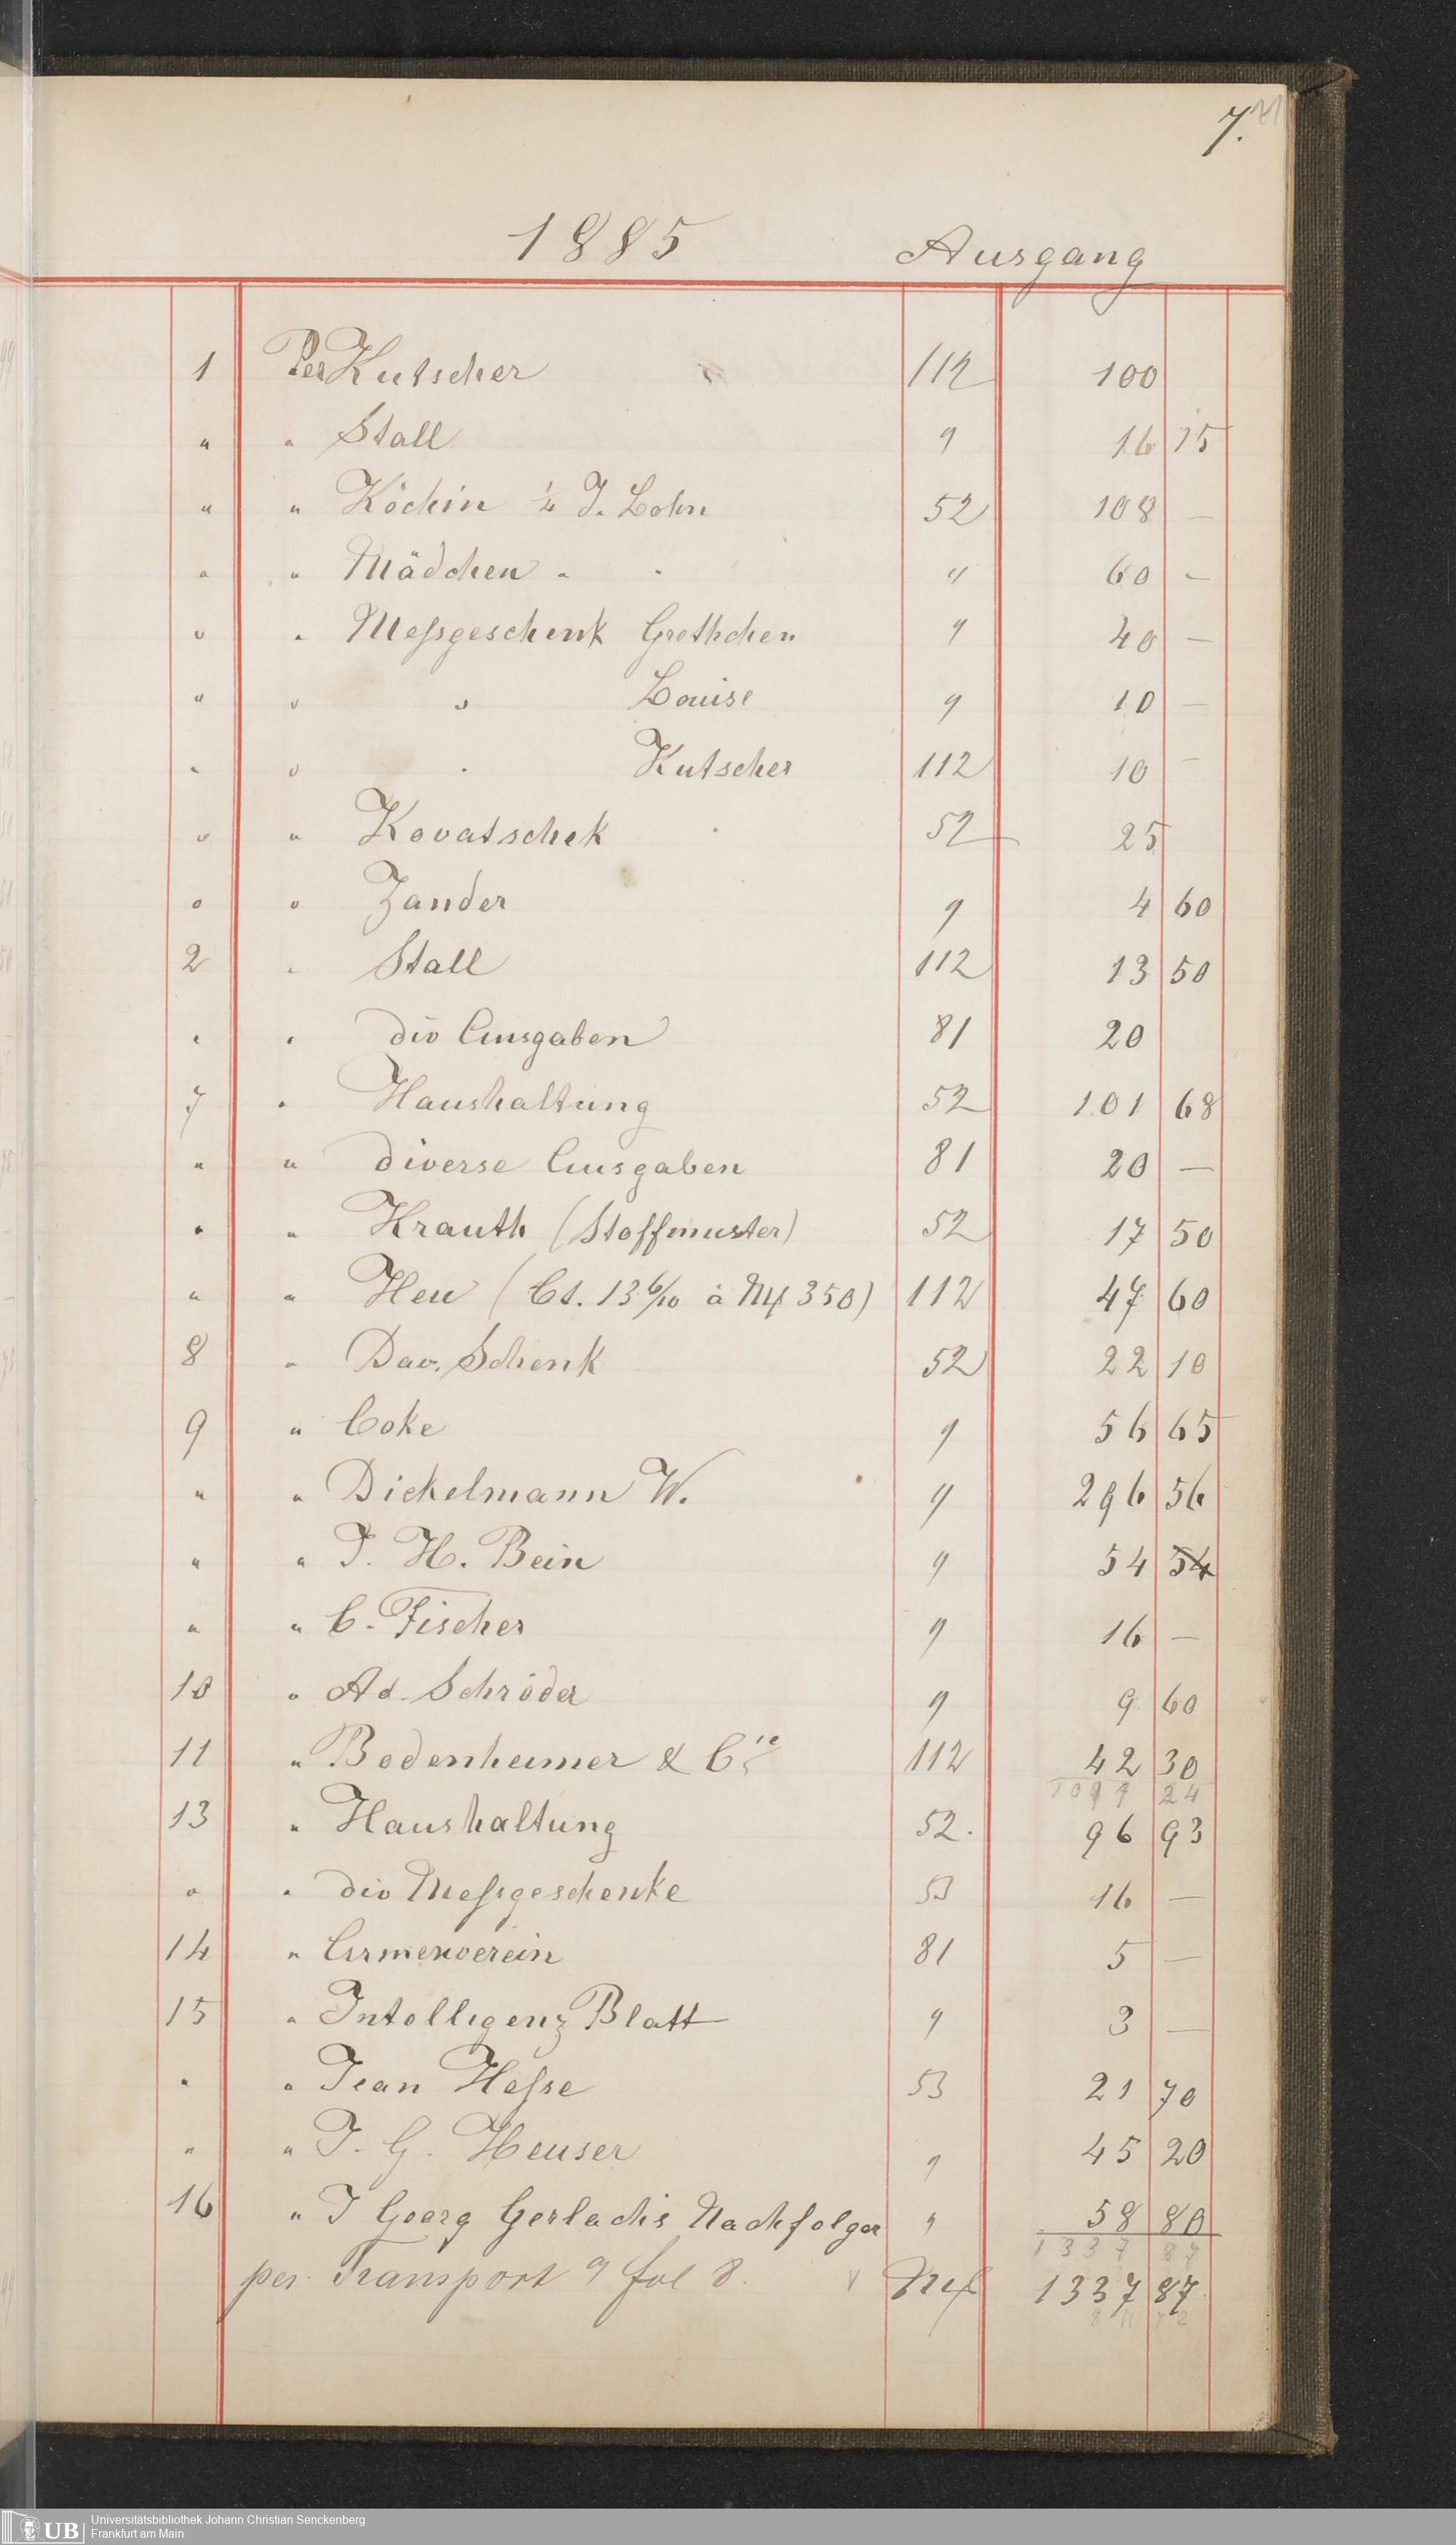 7.
1885 Ausgang
1 Per Kutscher 112 100
" " Stall " 16 75
" " Köchin ¼ J. Lohn 52 108 —
" " Mädchen " " " 60 —
" " Meſsgeschenk Grethchen " 40 —
" " " Louise " 10 —
" " " Kutscher 112 10 —
" " Kovatschek 52 25
" " Zander " 4 60
2 " Stall 112 13 50
" " div Ausgaben 81 20
7 " Haushaltung 52 101 68
" " diverse Ausgaben 81 20 —
" " Krauth (Stoffmuster) 52 17 50
" " Heu (Ct. 13 6/10 à M 350) 112 47 60
8 " Dav. Schenk 52 22 10
9 " Coke " 56 65
" " Dickelmann W. " 296 56
" " J. H. Bein " 54 54
" " C. Fischer " 16 —
10 " Ad. Schröder " 9 60
11 " Bodenheimer & Cie 112 42 30
1097 24
13 " Haushaltung 52. 96 93
" " div Meſsgeschenke 53 16 —
14 " Armenverein 81 5 —
15 " Intelligenz Blatt " 3 —
" " Jean Heſse 53 21 70
" " J. G. Heuser " 45 20
16 " J Goerg Gerlachs Nachfolger " 58 80
1337 87
per Transport " fol 8. M 1337 87
UB Universitätsbibliothek Johann Christian Senckenberg
Frankfurt am Main